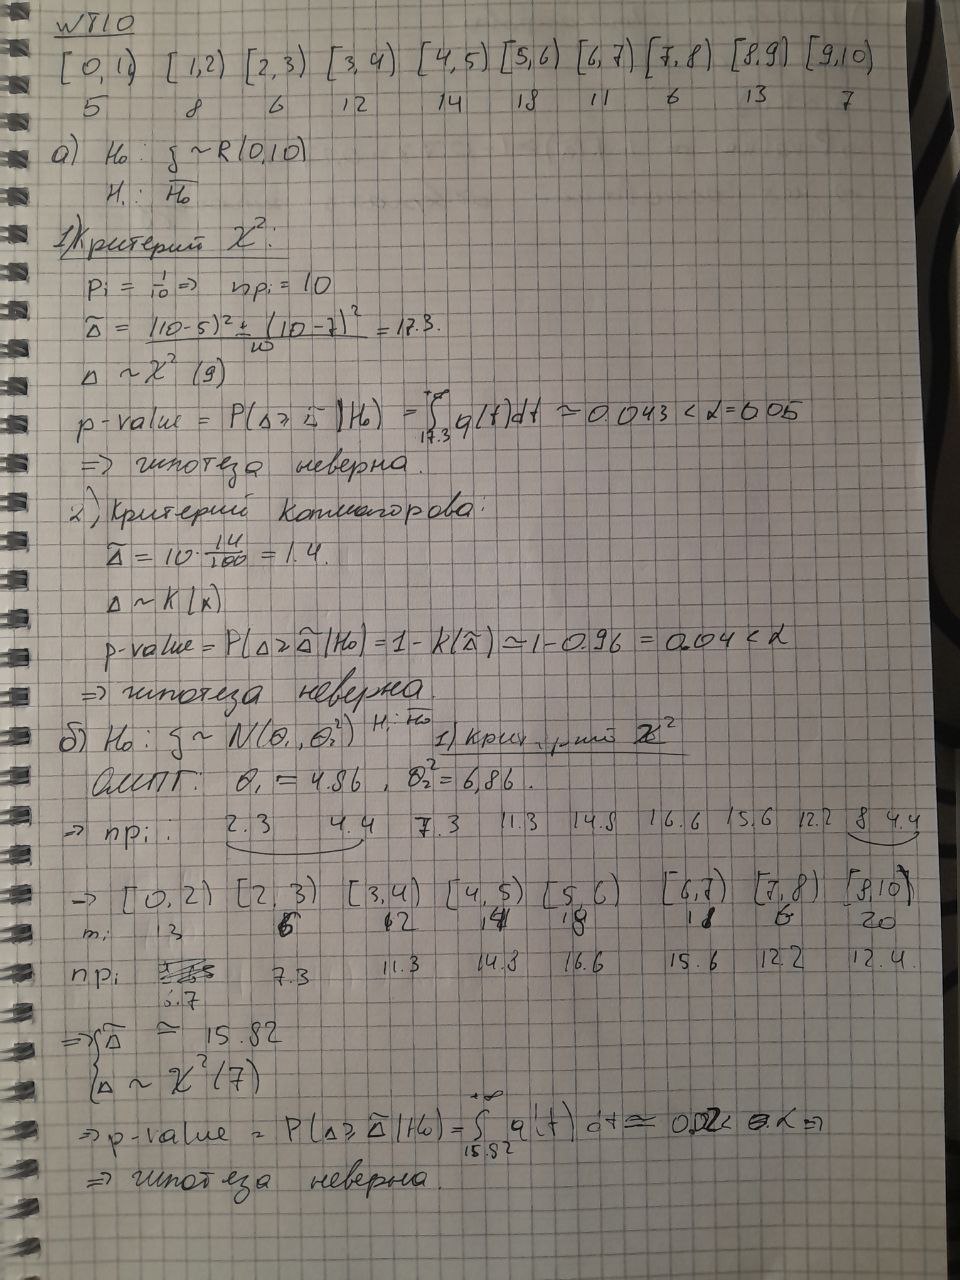 №10
[0,1) [1,2) [2,3) [3,4) [4,5) [5,6) [6,7) [7,8) [8,9) [9,10)
5 8 6 12 14 18 11 6 13 7
а) H₀: ξ ~ R(0,10)
H₁: H̅₀
1) Критерий χ²:
pᵢ = 1/10 => npᵢ = 10
Δ̃ = ((10-5)² + (10-7)²)/10 = 17.3.
Δ ~ χ²(9)
p-value = P(Δ ≥ Δ̃ | H₀) = ∫_{17.3}^{+∞} q(t)dt ≃ 0.043 < α = 0.05
=> гипотеза неверна.
2) Критерий Колмогорова:
Δ̃ = 10 · 14/100 = 1.4.
Δ ~ K(x)
p-value = P(Δ ≥ Δ̃ | H₀) = 1 - K(Δ̃) ≃ 1 - 0.96 = 0.04 < α
=> гипотеза неверна.
б) H₀: ξ ~ N(θ₁, θ₂²) H₁: H̅₀ 1) Критерий χ²
ОМПГ: θ₁ = 4.86, θ₂² = 6,86.
=> npᵢ: 2.3 4.4 7.3 11.3 14.8 16.6 15.6 12.2 8 4.4
-> [0,2) [2,3) [3,4) [4,5) [5,6) [6,7) [7,8) [8,10)
mᵢ 13 6 12 14 18 11 6 20
npᵢ 6.7 7.3 11.3 14.8 16.6 15.6 12.2 12.4.
=> { Δ̃ ≃ 15.82
Δ ~ χ²(7)
=> p-value = P(Δ ≥ Δ̃ | H₀) = ∫_{15.82}^{+∞} q(t) dt ≃ 0.02 < α =>
=> гипотеза неверна.